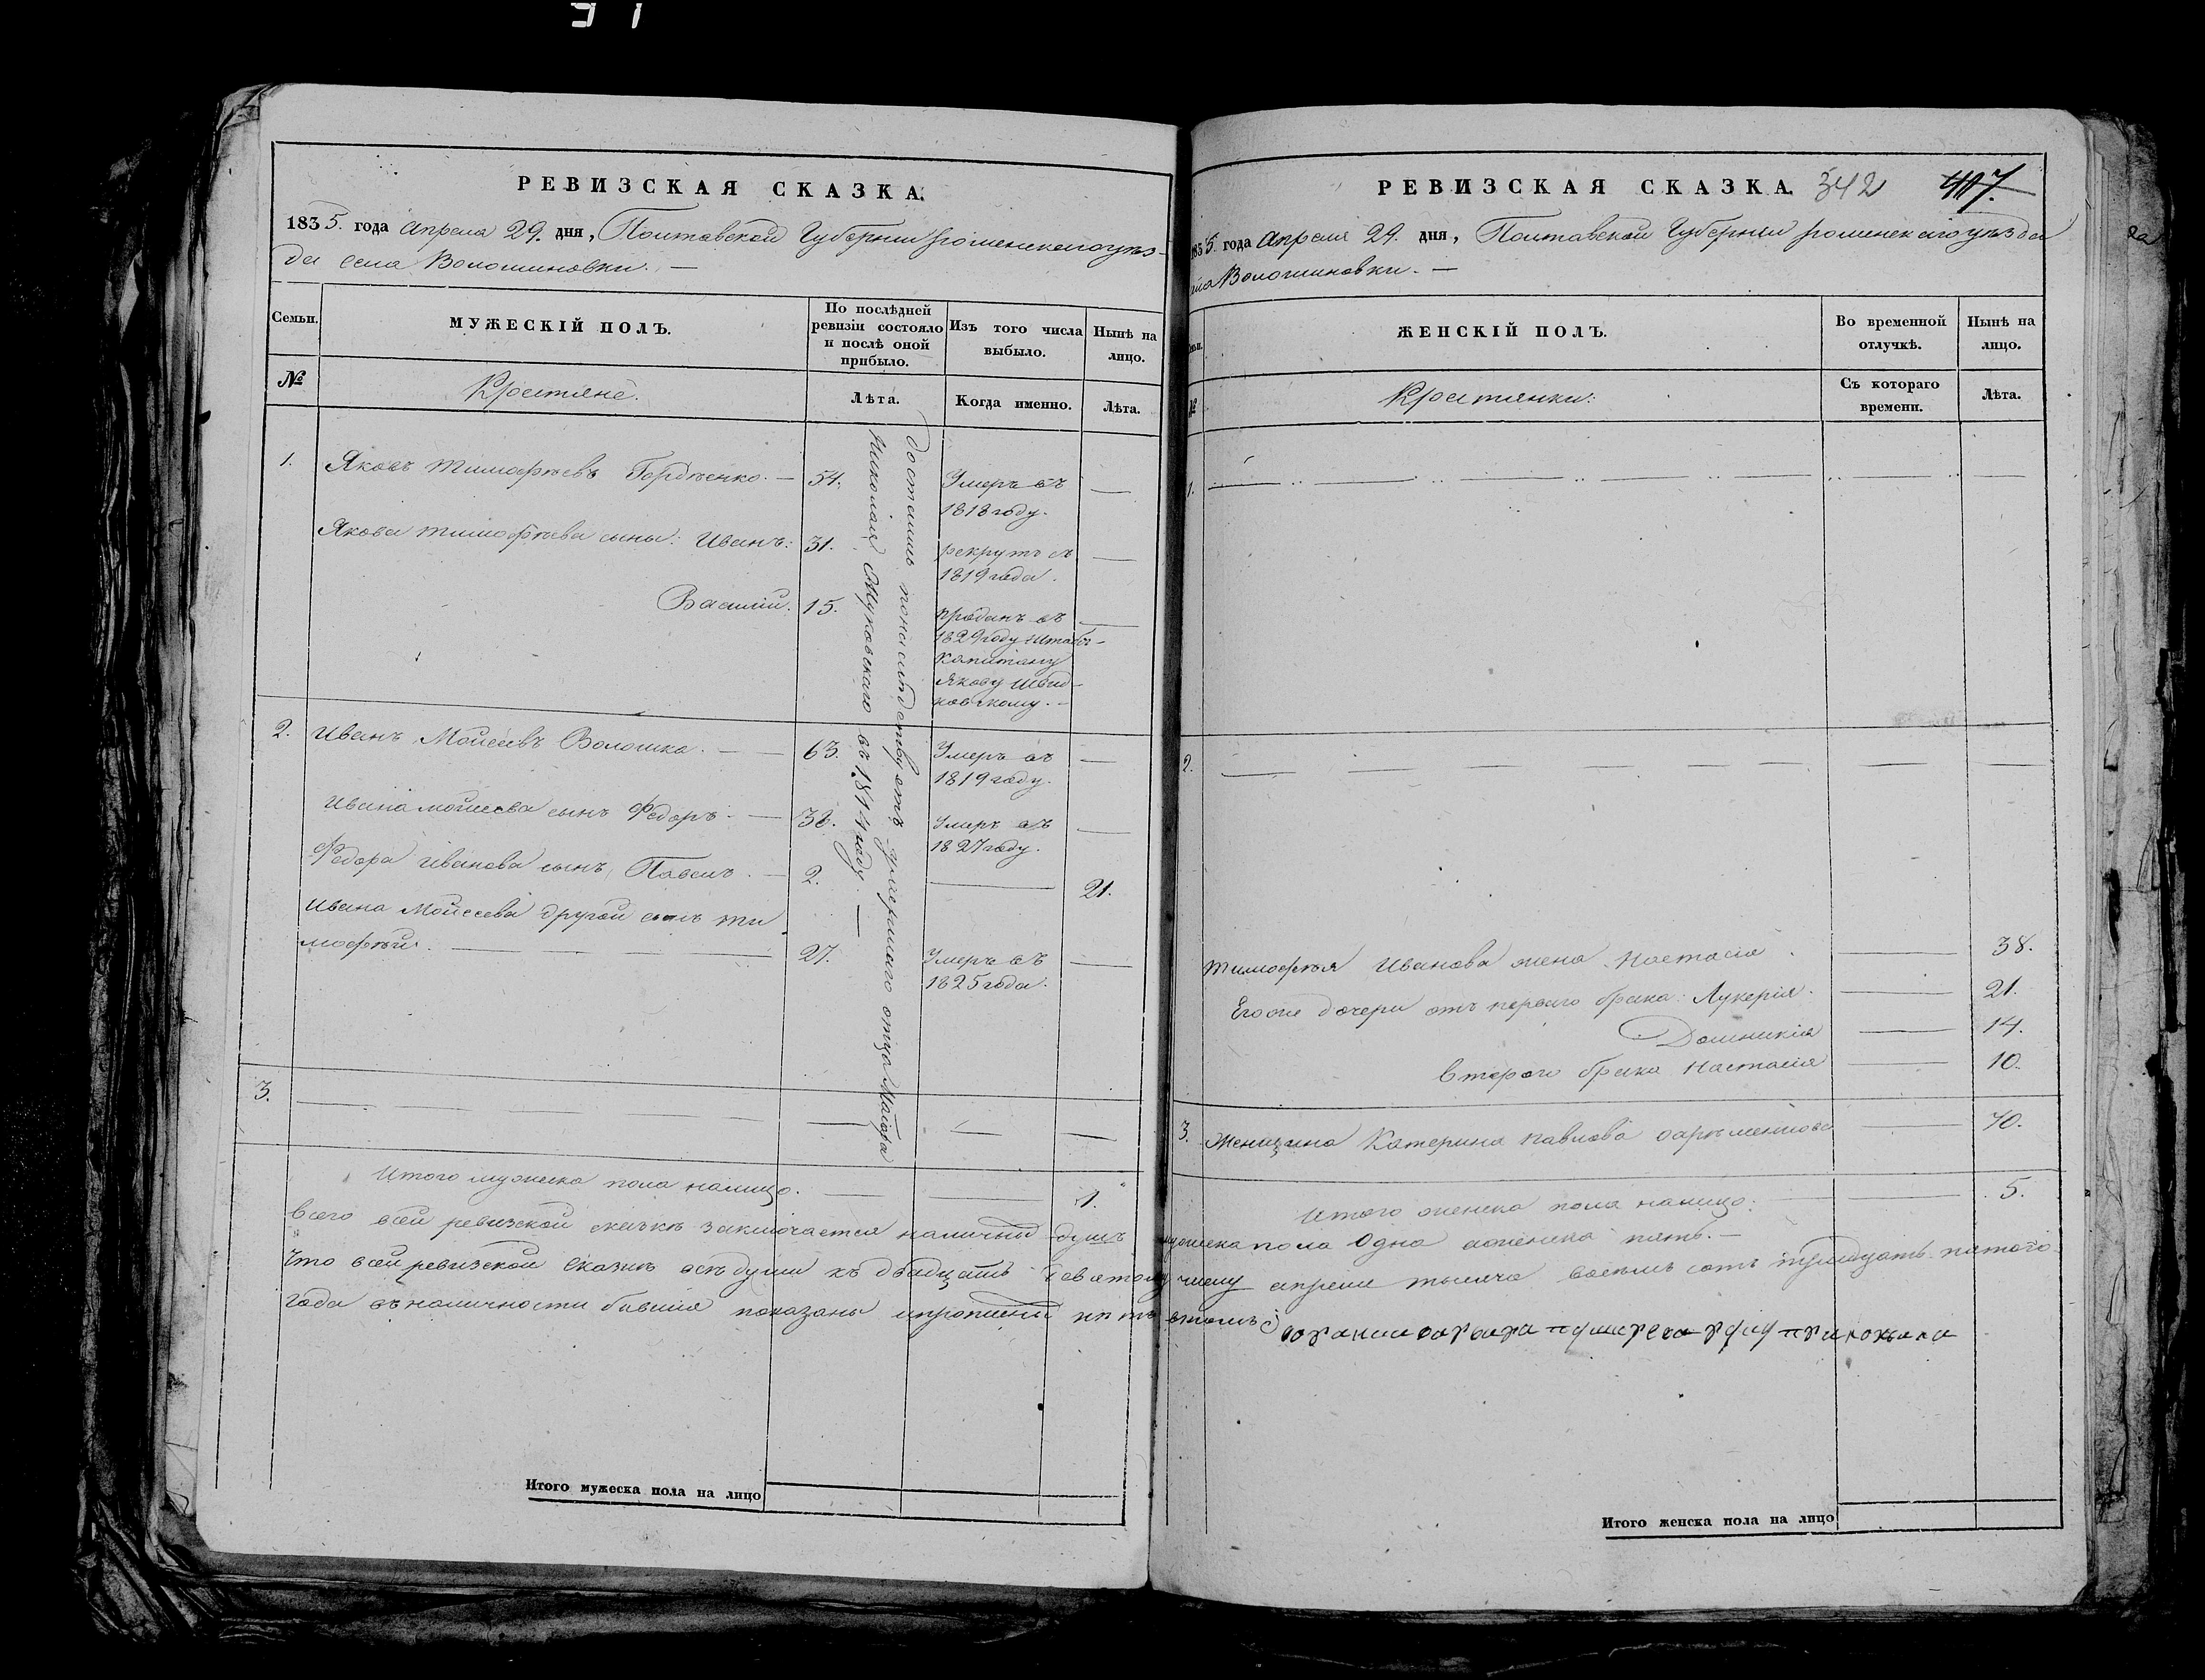 РЕВИЗСКАЯ СКАЗКА.
1835. года Апреля 29. дня, Полтавской Губернии роменского уез-
да села Волошиновки. —
Семьи.
МУЖЕСКІЙ ПОЛЪ.
По послѣдней ревизіи состояло и послѣ оной прибыло.
Изъ того числа выбыло.
Нынѣ на лицо.
№
Крестяне.
Лѣта.
Когда именно.
Лѣта.
1. Яковъ Тимофѣевъ Гордѣенко. — 54. Умеръ въ —
1818 году.
Якова тимофѣева сыны: Иванъ: 31. рекрутъ съ —
1819 года.
Василій. 15. проданъ въ —
1829 году Штабсъ-
Капитану
Якову Швид-
ковскому. —
достались понаслѣдству отъ умершаго отца Маіора
Николая Жуковского въ 1811 году. —
2. Иванъ Моисеевъ Волошко. — 63. Умеръ въ —
1819 году.
Ивана моисеева сынъ Федоръ. — 38. Умеръ въ —
1827 году.
Федора иванова сынъ Павелъ. — 2. — 21.
Ивана Моисеева другой сынъ ти
мофѣй. — 27. Умеръ въ —
1825 года.
3. — — — — — —
Итого мужеска пола налицо. — — 1.
РЕВИЗСКАЯ СКАЗКА. 342 417.
1835. года Апреля 29. дня, Полтавской Губернии роменского уезда
Волошиновки. —
ЖЕНСКІЙ ПОЛЪ.
Во временной отлучкѣ.
Нынѣ на лицо.
№
Крестянки:
Съ котораго времени.
Лѣта.
1. — — — — — —
2. — — — — — —
тимофѣя Иванова жена Настасія. — 38.
Егоже дочери отъ перваго брака: Лукерія. — 21.
Домникія — 14.
втораго брака Настасія — 10.
3. Женщина Катерина павлова — 70.
Итого женска пола налицо: — 5.
Всего в сей ревизской сказкѣ заключается наличных душъ мужеска пола Одна а женска пять. —
Что в сей ревизской Сказкѣ всѣ души къ двадцать девятому числу апреля тысяча восемь сотъ тридцать пятого
года въ наличности бывшія показаны и прописных нѣтъ втомъ
Итого мужеска пола на лицо
Итого женска пола на лицо